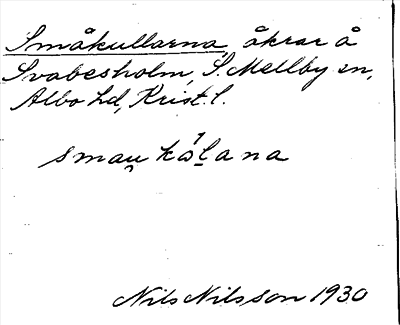 Småkullarna, åkrar å
Svabesholm, S. Mellby sn,
Albo hd, Krist. l.
smau̯ kɷ́l̠ana
Nils Nilsson 1930